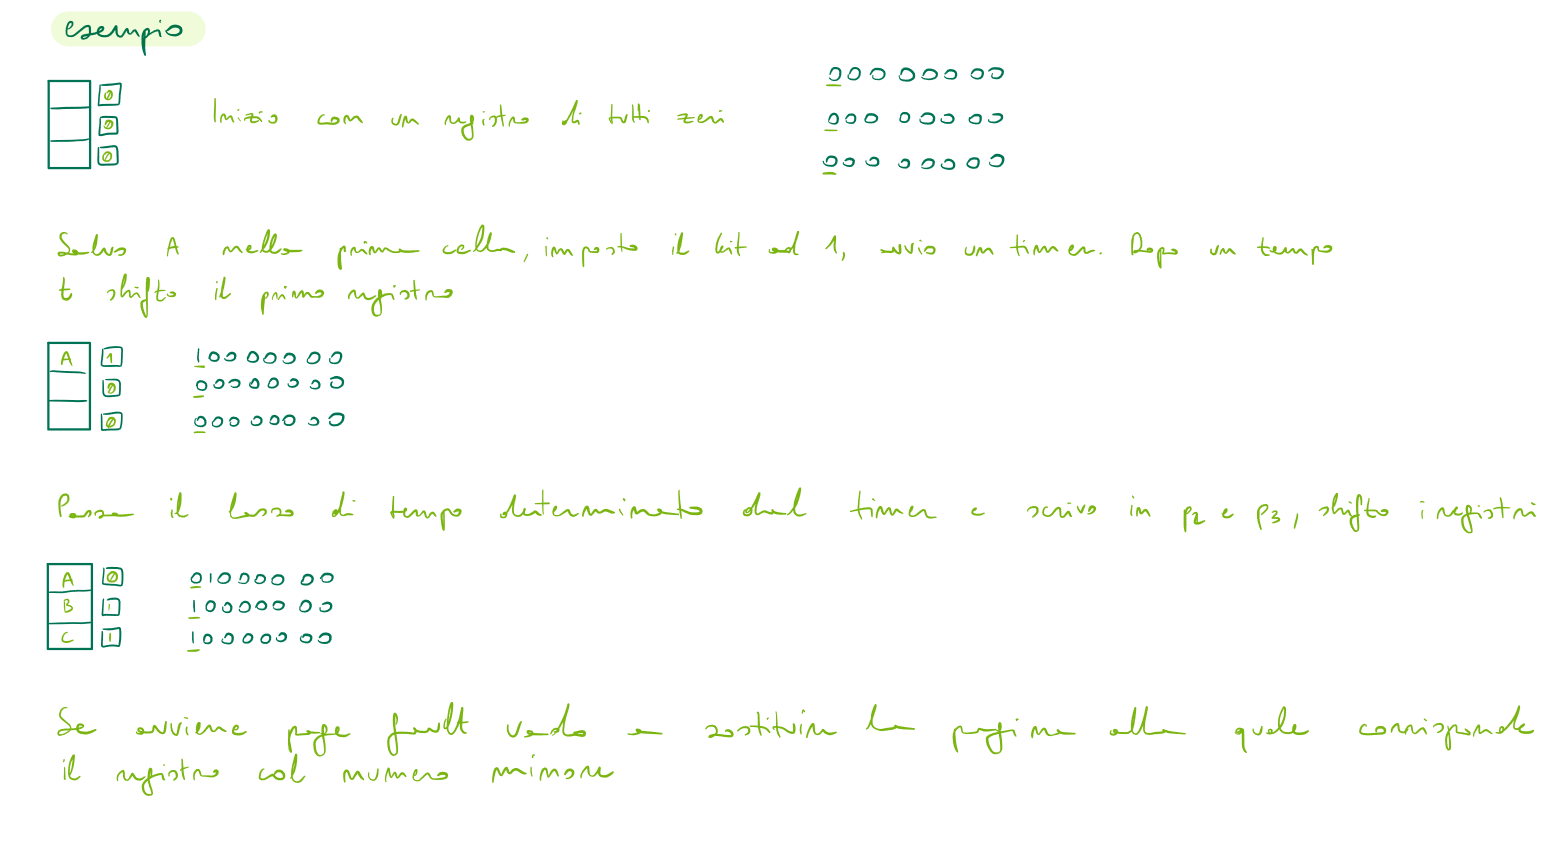 esempio
0
0
0
Inizio con un registro di tutti zeri
00000000
00000000
00000000
Salvo A nella prima cella, imposto il bit ad 1, avvio un timer. Dopo un tempo
t shifto il primo registro
A 1 10000000
0 00000000
0 00000000
Passa il lasso di tempo determinato dal timer e scrivo in p2 e p3, shifto i registri
A 0 01000000
B 1 10000000
C 1 10000000
Se avviene page fault vado a sostituire la pagina alla quale corrisponde
il registro col numero minore